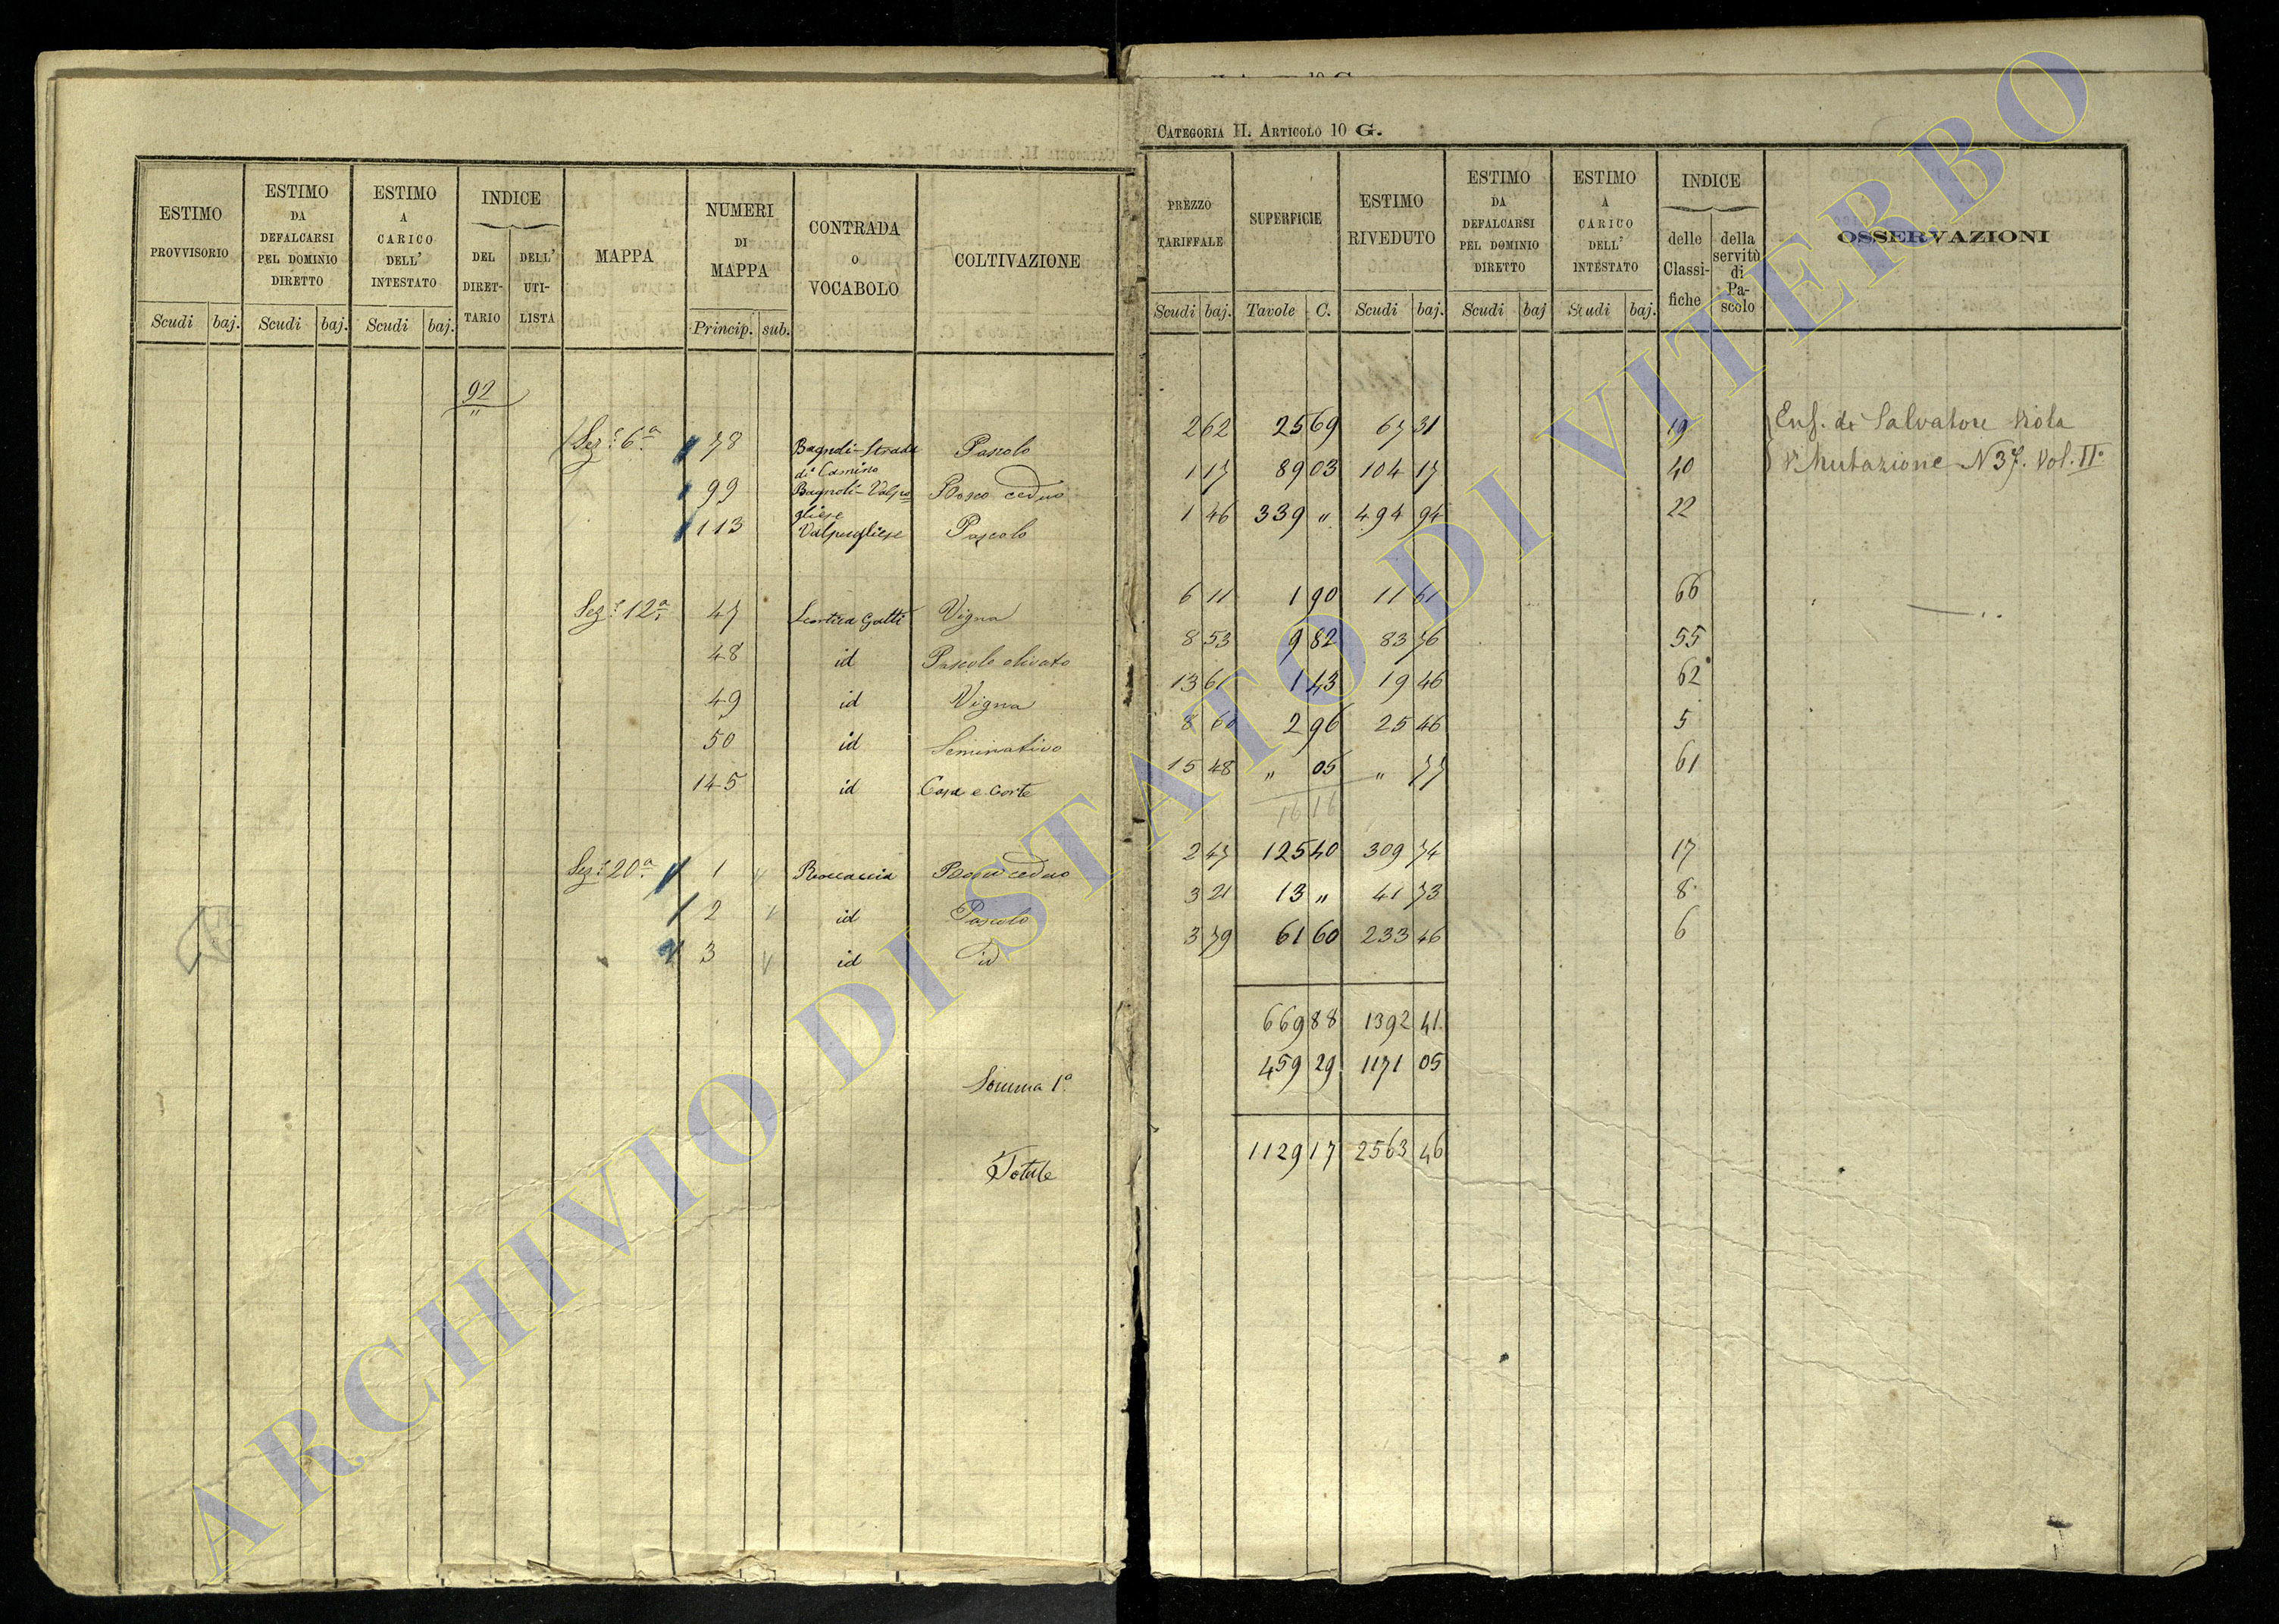 CATEGORIA II. ARTICOLO 10 G.
ESTIMO PROVVISORIO
Scudi baj.
ESTIMO DA DEFALCARSI PEL DOMINIO DIRETTO
Scudi baj.
ESTIMO A CARICO DELL' INTESTATO
Scudi baj.
INDICE
DEL DIRET-TARIO
DELL' UTI-LISTA
MAPPA
NUMERI DI MAPPA
Princip. sub.
CONTRADA O VOCABOLO
COLTIVAZIONE
PREZZO TARIFFALE
Scudi baj.
SUPERFICIE
Tavole C.
ESTIMO RIVEDUTO
Scudi baj.
ESTIMO DA DEFALCARSI PEL DOMINIO DIRETTO
Scudi baj
ESTIMO A CARICO DELL' INTESTATO
Scudi baj.
INDICE
delle Classi-fiche
della servitù di Pa-scolo
OSSERVAZIONI
92
Sez.e 6a 78 Bagnoli-Strada di Camino Pascolo 2 62 25 69 67 31 19 Enf. di Salvatore Viola
99 Bagnoli-Valpugliese Bosco ceduo 1 17 89 03 104 17 40 V. Mutazione N 37. Vol. IIo
113 Valpugliese Pascolo 1 46 339 " 494 94 22
Sez.e 12a 47 Scortica Gatti Vigna 6 11 1 90 11 61 66
48 id Pascolo olivato 8 53 9 82 83 76 55
49 id Vigna 13 61 1 43 19 46 62
50 id Seminativo 8 60 2 96 25 46 5
145 id Casa e Corte 15 48 " 05 " 77 61
16 16
Sez.e 20a 1 Roccaccia Bosco ceduo 2 47 125 40 309 74 17
2 id Pascolo 3 21 13 " 41 73 8
3 id id 3 79 61 60 233 46 6
669 88 1392 41
Somma 1a 459 29 1171 05
Totale 1129 17 2563 46
ARCHIVIO DI STATO DI VITERBO